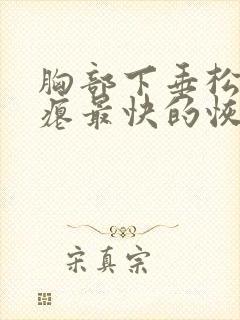 胸部下垂松
瘪最快的恢
宋真宗